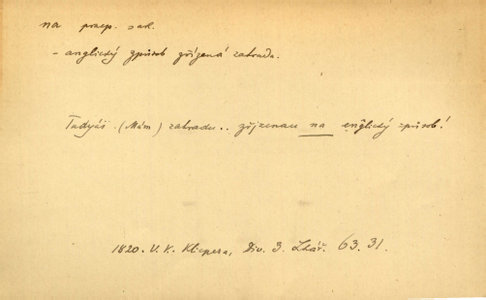 na praep. s ak.
- anglický způsob zřízená zahrada.
Tadyáš. (Mám) zahradu.. zřízenau na englický způsob!
1820. V. K. Klicpera, Div. 3. Lhář. 63. 31.